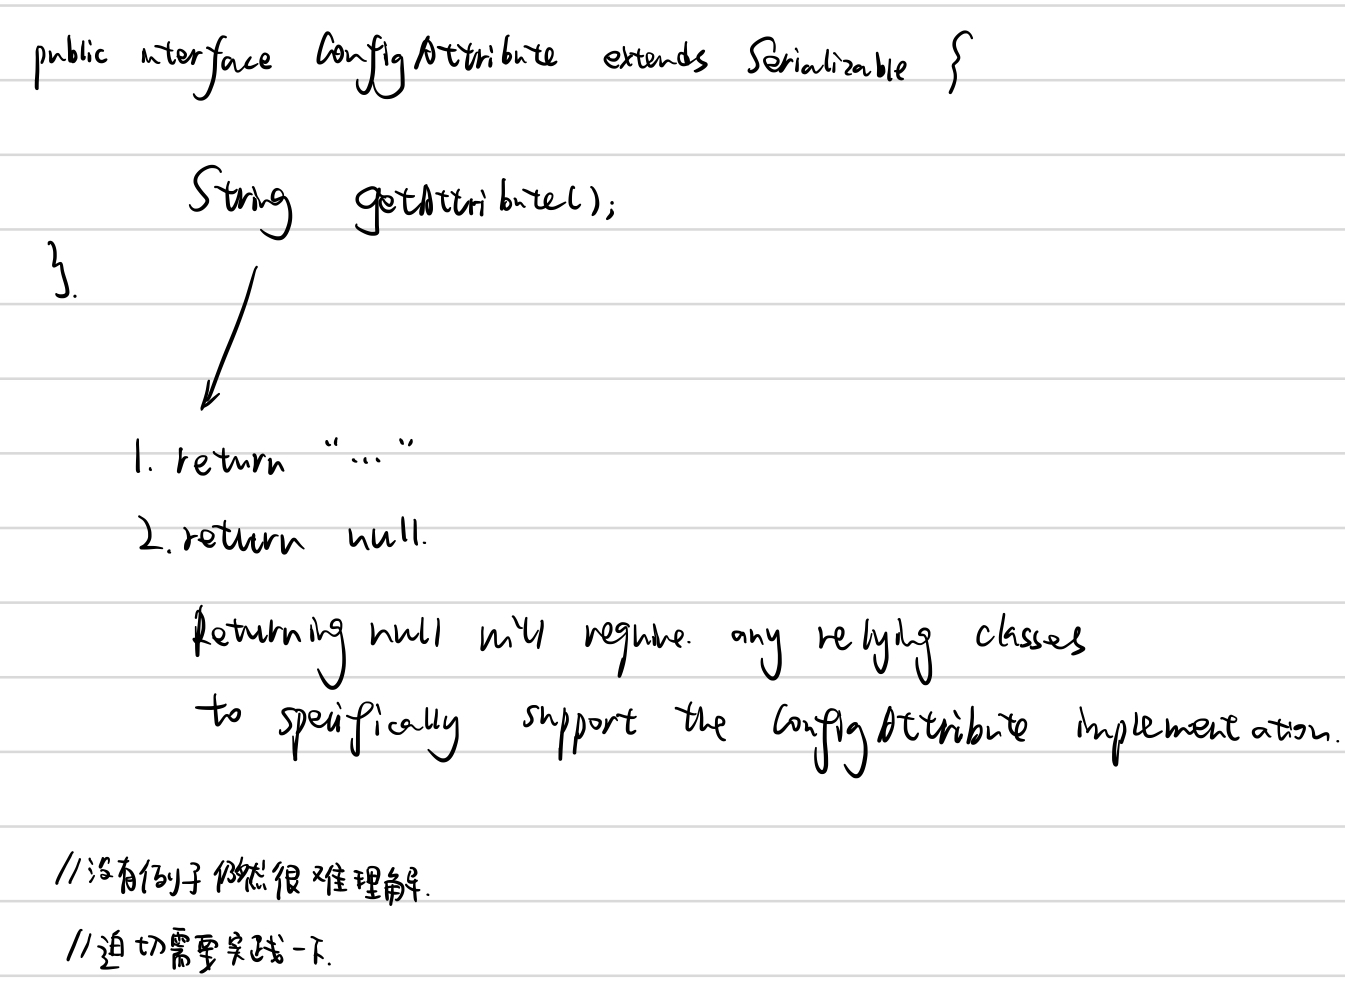 public interface ConfigAttribute extends Serializable {
String getAttribute();
}.
1. return "..."
2. return null.
Returning null will require. any relying classes
to specifically support the ConfigAttribute implementation.
//没有例子仍然很难理解.
//迫切需要实践一下.